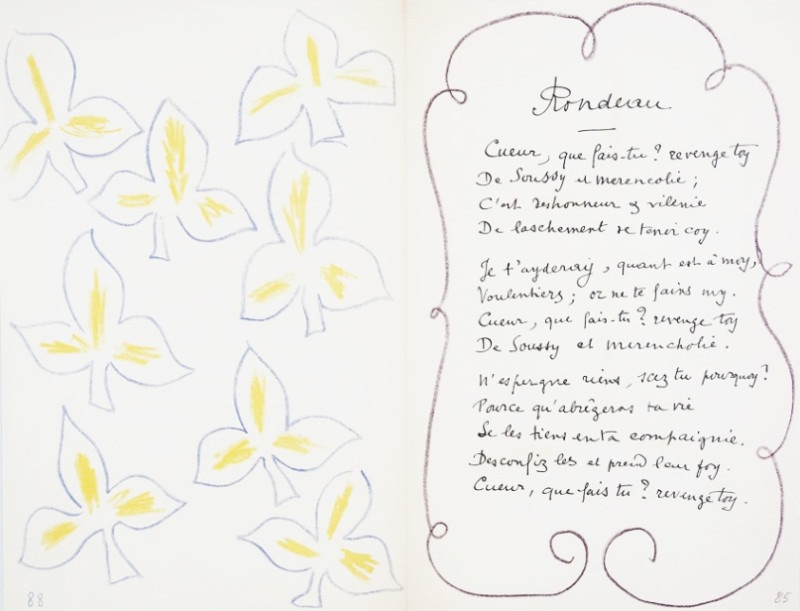 Rondeau
Cueur, que fais-tu? revenge toy
De Soussy et merencolie;
C'est deshonneur & vilenie
De laschement se tenir coy.
Je t'ayderay, quant est à moy,
Voulentiers; or ne te fains my.
Cueur, que fais-tu? revenge toy
De Soussy et merencholie.
N'espergne riens, scez tu pourquoy?
Pource qu'abrègeras ta vie
Se les tiens en ta compaignie.
Desconfiz les et prend leur foy.
Cueur, que fais tu? revenge toy.
88
85